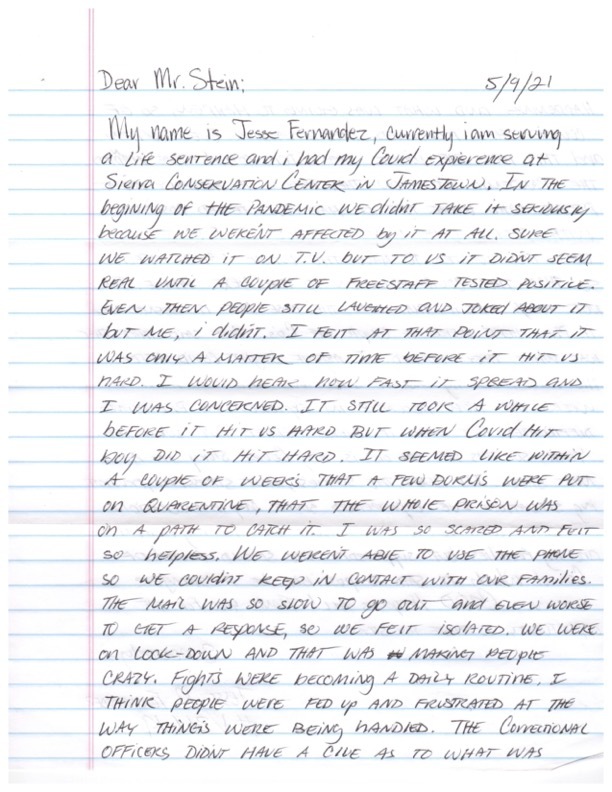 Dear Mr. Stein; 5/9/21
My name is Jesse Fernandez, currently i am serving
a life sentence and i had my Covid expierence at
Sierra CONSERVATION CENTER in JAMESTOWN. IN THE
begining of THE PANDEMIC WE didnt TAKE it SERIOUSLY
because WE WEREN'T AFFECTED by it AT ALL. SURE
WE WATCHED IT ON T.V. but TO US IT DIDNT SEEM
REAL UNTIL A COUPLE OF FREESTAFF TESTED POSITIVE.
EVEN THEN PEOPLE STILL LAUGHED AND JOKED ABOUT IT
but ME, i didnt. I FELT AT THAT POINT THAT IT
WAS ONLY A MATTER OF TIME BEFORE IT HIT US
HARD. I WOULD HEAR HOW FAST IT SPREAD AND
I WAS CONCERNED. IT STILL TOOK A WHILE
BEFORE IT HIT US HARD BUT WHEN Covid HIT
boy DID IT HIT HARD. IT SEEMED LIKE WITHIN
A COUPLE OF WEEKS THAT A FEW DORMS WERE PUT
ON QUARENTINE, THAT THE WHOLE PRISON WAS
ON A PATH TO CATCH IT. I WAS SO SCARED AND FELT
SO helpless. WE WERENT ABLE TO USE THE PHONE
SO WE COULDNT KEEP IN CONTACT WITH OUR FAMILIES.
THE MAIL WAS SO SLOW TO GO OUT and EVEN WORSE
TO GET A RESPONSE, SO WE FELT ISOLATED. WE WERE
ON LOCK-DOWN AND THAT WAS MAKING PEOPLE
CRAZY. FIGHTS WERE BECOMING A DAILY ROUTINE. I
THINK PEOPLE WERE FED UP AND FRUSTRATED AT THE
WAY THINGS WERE BEING HANDLED. THE CORRECTIONAL
OFFICERS DIDNT HAVE A CLUE AS TO WHAT WAS